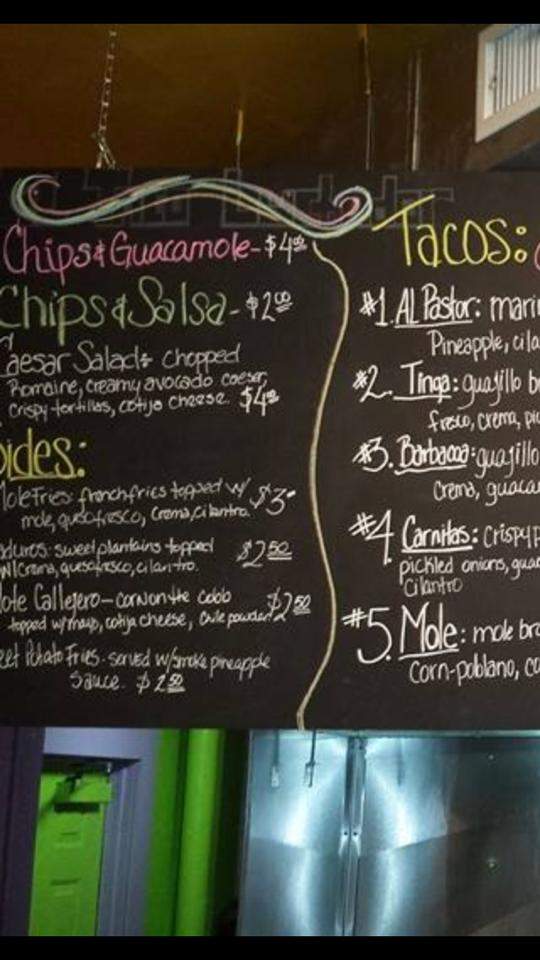 Chips & Guacamole - $4.00
Chips & Salsa - $2.00
Caesar Salad: chopped
Romaine, creamy avocado caeser,
crispy tortillas, cotija cheese.
ides:
Mole Fries: french fries topped w/ $3
mole, queso fresco, crema, cilantro.
duros: sweet plantains topped $2.50
w/ crema, queso fresco, cilantro.
lote Callejero - corn on the cobb
topped w/ mayo, cotija cheese, chile powder
eet Potato Fries - served w/ smoke pineapple
Sauce. $2.50
Tacos:
#1. Al Pastor: marin
Pineapple, cila
#2. Tinga: guajillo b
fresco, crema, pic
#3. Barbacoa: guajillo
Crema, guaca
#4. Carnitas: Crispy p
pickled onions, gua
cilantro
#5. Mole: mole bra
Corn-poblano, co